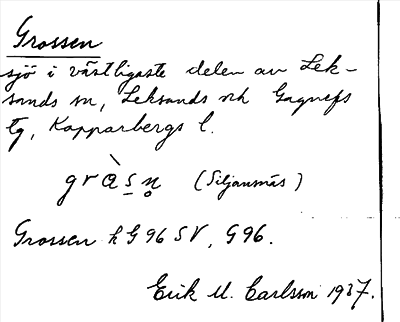 Grossen
sjö i västligaste delen av Lek-
sands sn, Leksands och Gagnefs
tg, Kopparbergs l.
gròsn̥ (Siljansnäs)
Grossen k G 96 SV, G 96.
Erik M. Carlsson 1937.